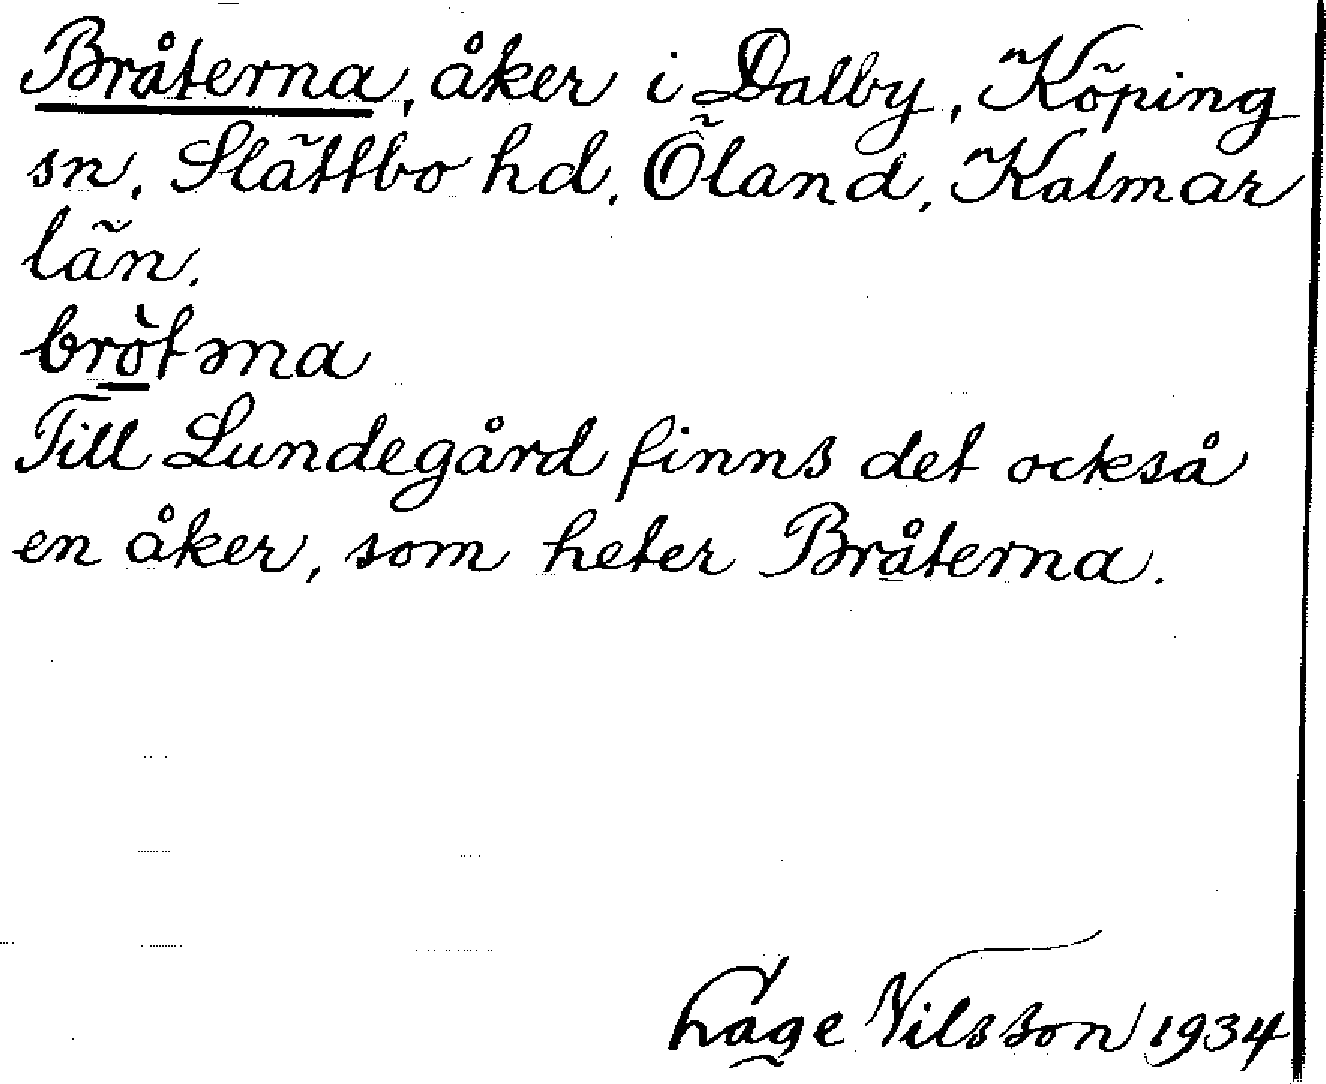 Bråterna, åker i Dalby, Köping
sn, Slättbo hd, Öland, Kalmar
län.
brò̱təna
Till Lundegård finns det också
en åker, som heter Bråterna.
Låge Nilsson 1934